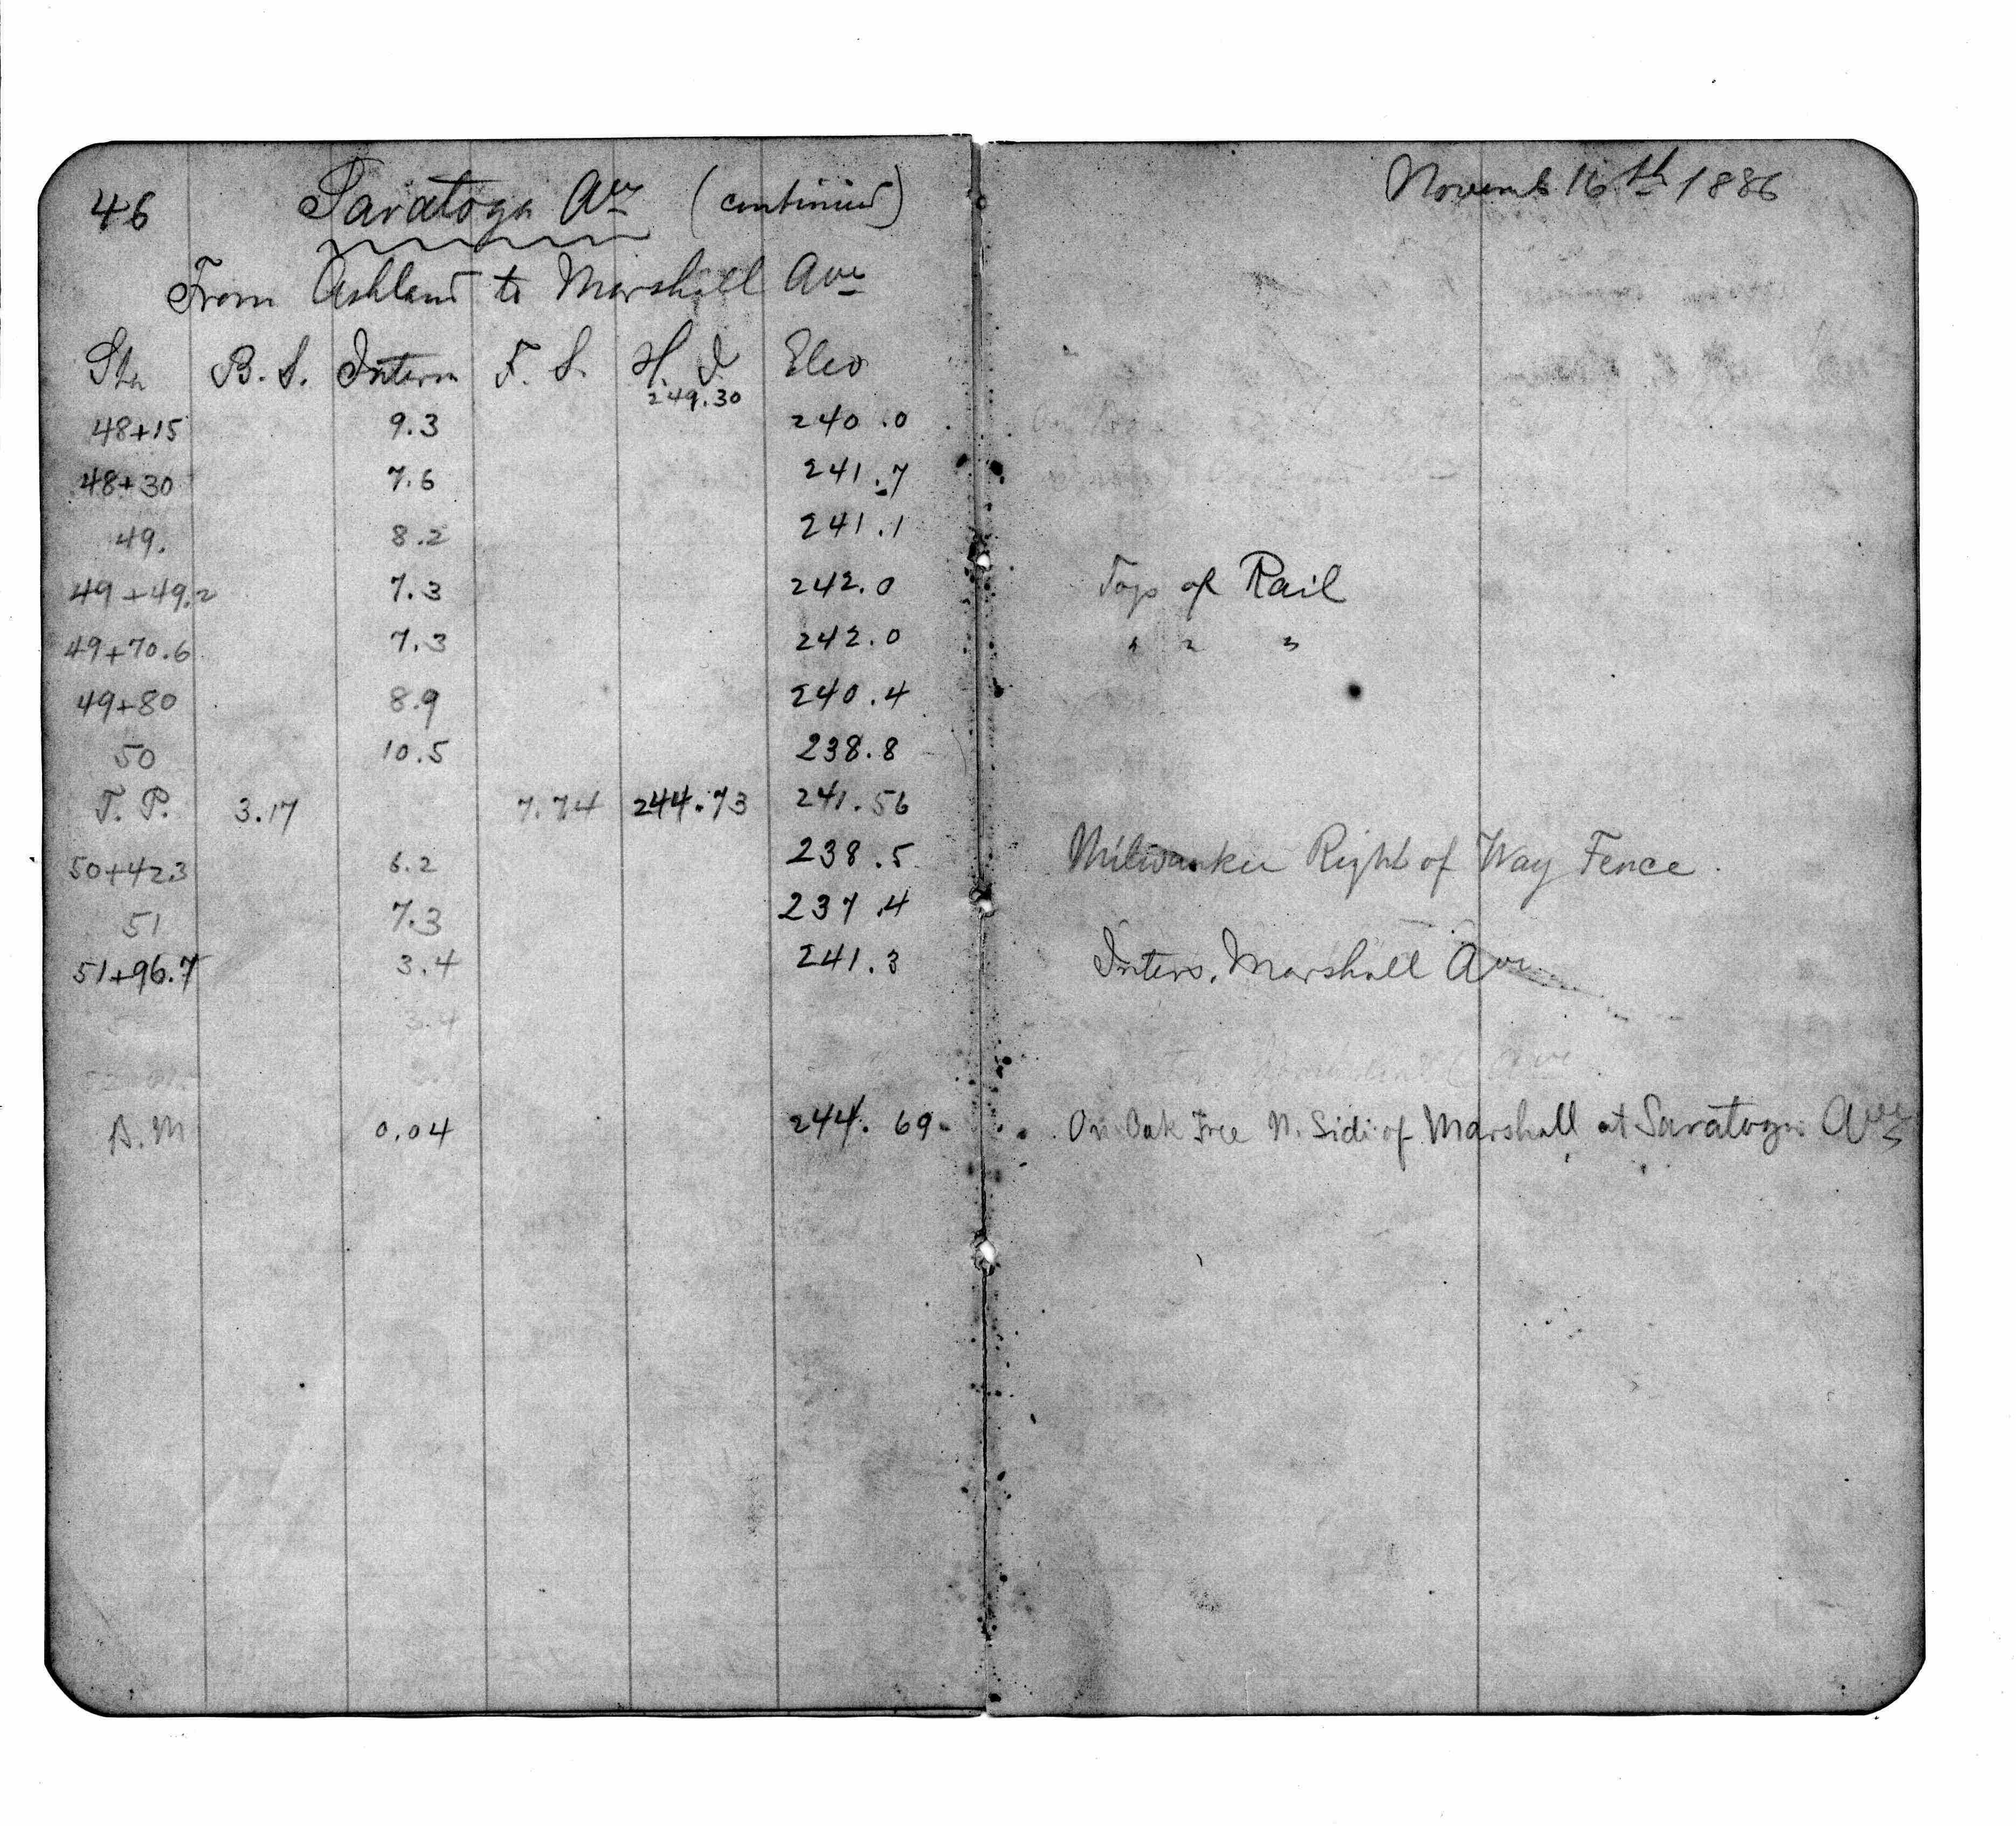 46 Saratoga Ave (continued)
From Ashland to Marshall Ave
Sta B.S. Interm F.S. H.I. Elev
249.30
48+15 9.3 240.0
48+30 7.6 241.7
49. 8.2 241.1
49+49.2 7.3 242.0
49+70.6 7.3 242.0
49+80 8.9 240.4
50 10.5 238.8
T.P. 3.17 7.74 244.73 241.56
50+42.3 6.2 238.5
51 7.3 237.4
51+96.7 3.4 241.3
3.4
B.M 0.04 244.69
Novemb 16th 1886
Top of Rail
" " "
Milwaukee Right of Way Fence
Inters. Marshall Ave
On Oak Tree N. Side of Marshall at Saratoga Ave